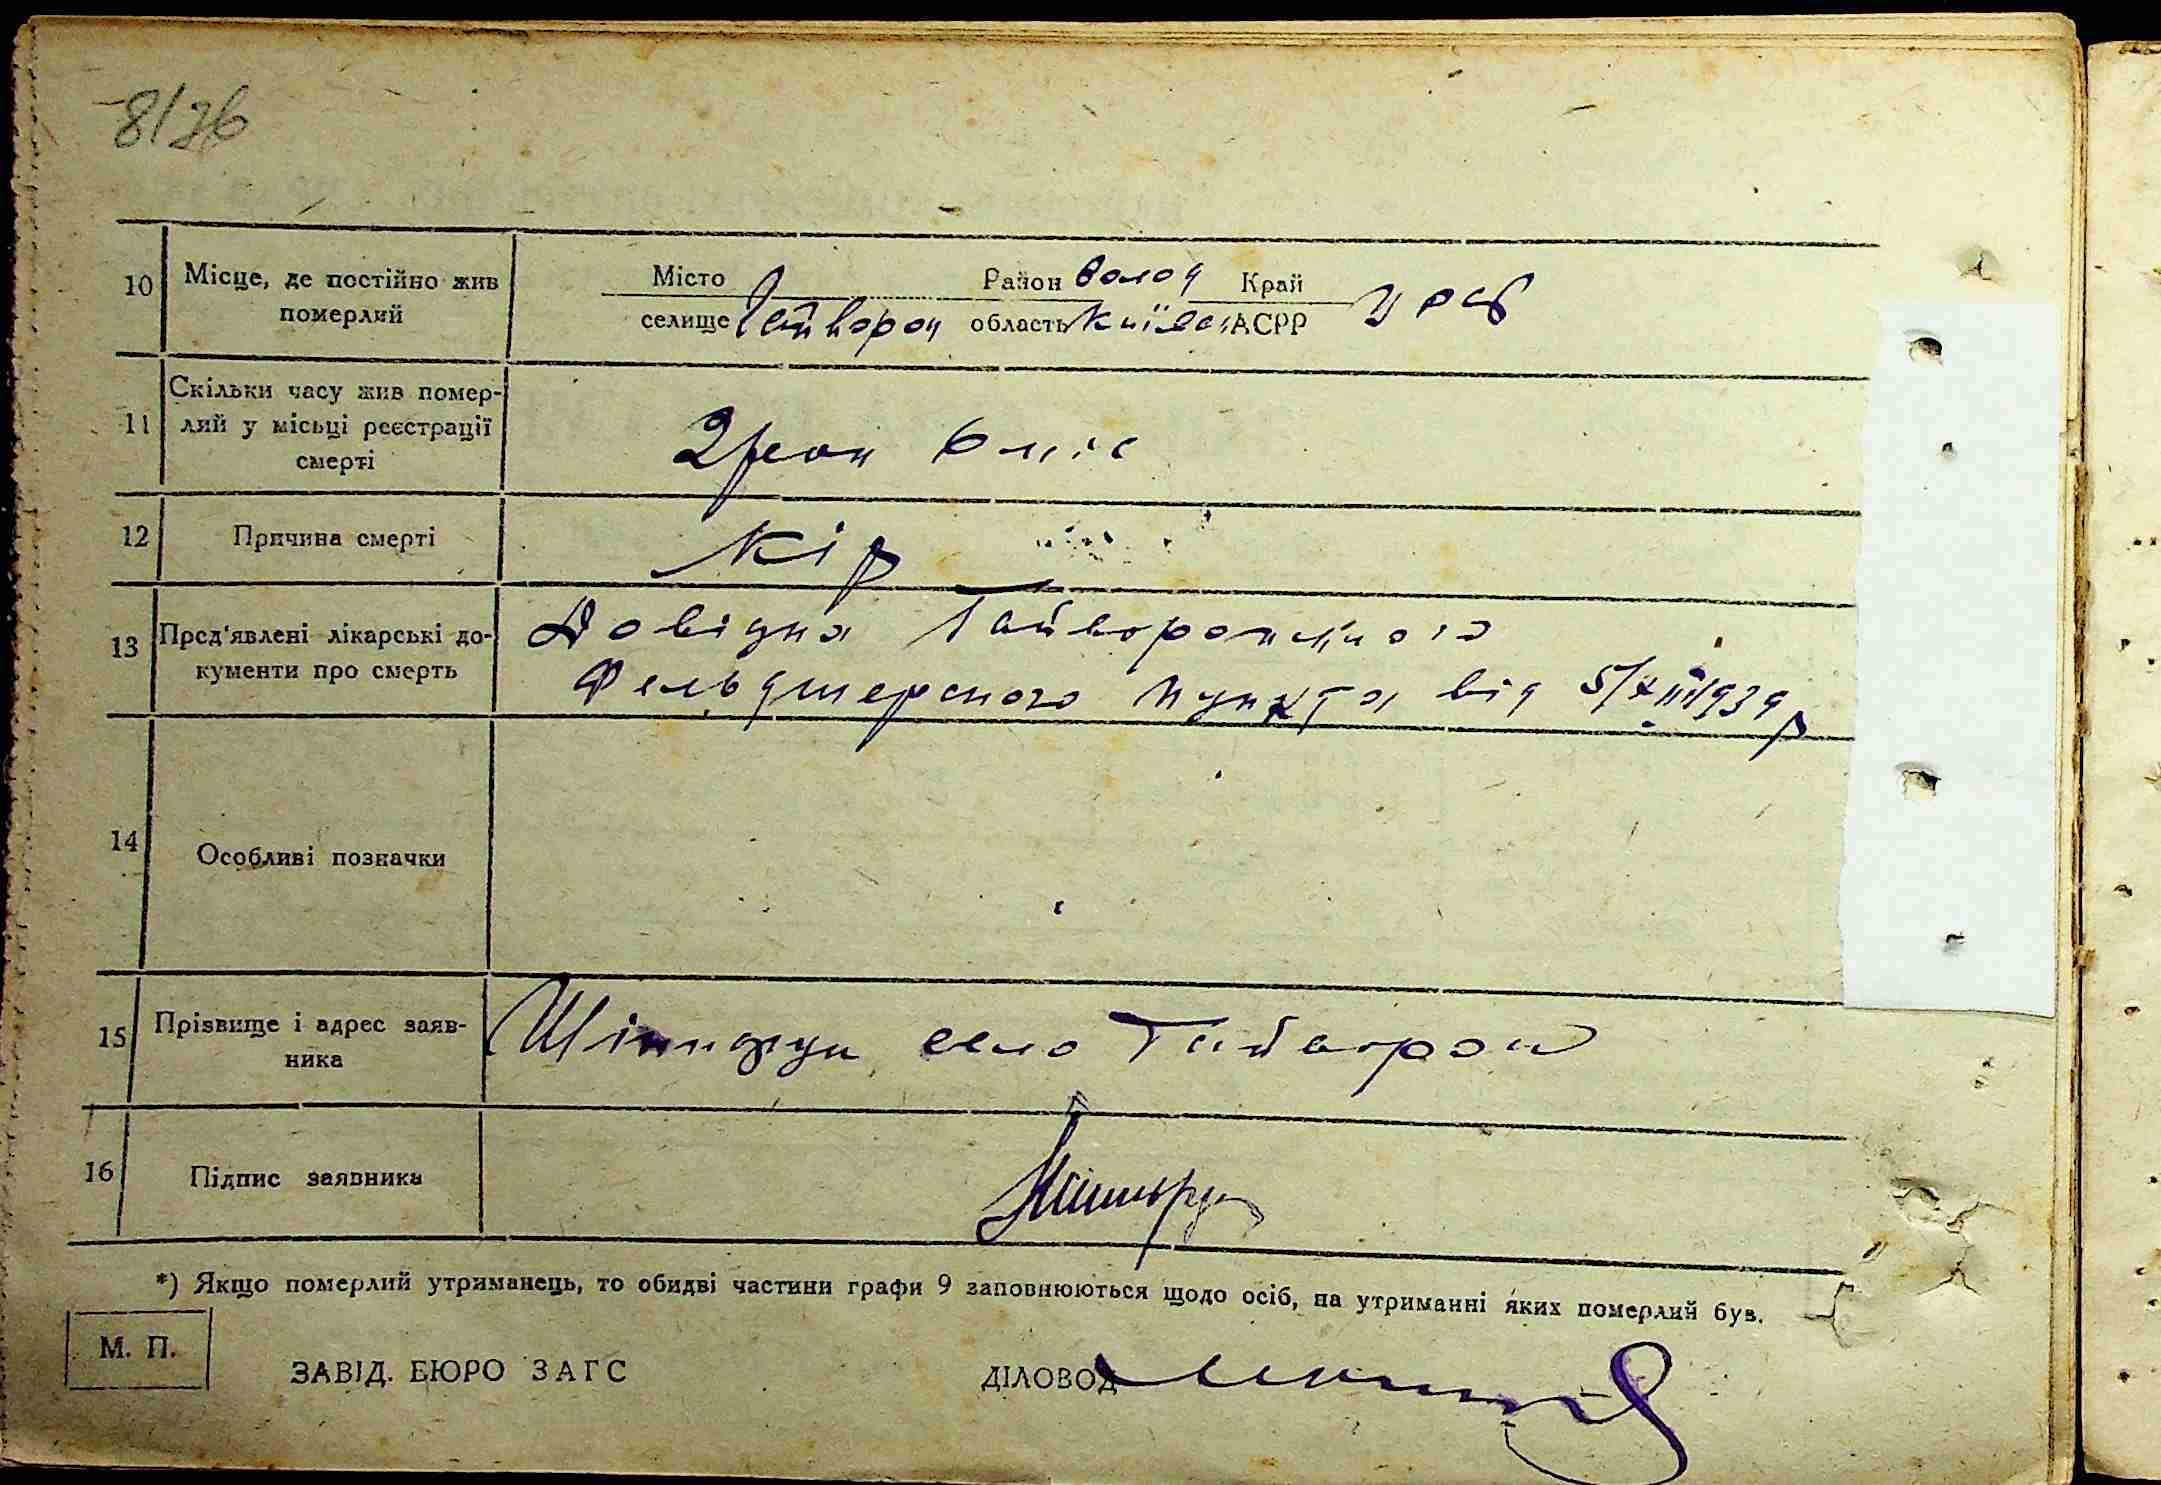 8/76
10 Місце, де постійно жив померлий
Місто Район Волод Край
селище Гайворон область Київськ АСРР УРСР
11 Скільки часу жив помер-
лий у місьці реєстрації
смерті
2 роки 6 міс
12 Причина смерті Кір
13 Пред'явлені лікарські до-
кументи про смерть
Довідка Гайворонського
Фельдшерського пункта від 5/XII 1939 р
14 Особливі позначки
15 Прізвище і адрес заяв-
ника
село Гайворон
16 Підпис заявника
*) Якщо померлий утриманець, то обидві частини графи 9 заповнюються щодо осіб, на утриманні яких померлий був.
М. П.
ЗАВІД. БЮРО ЗАГС ДІЛОВОД